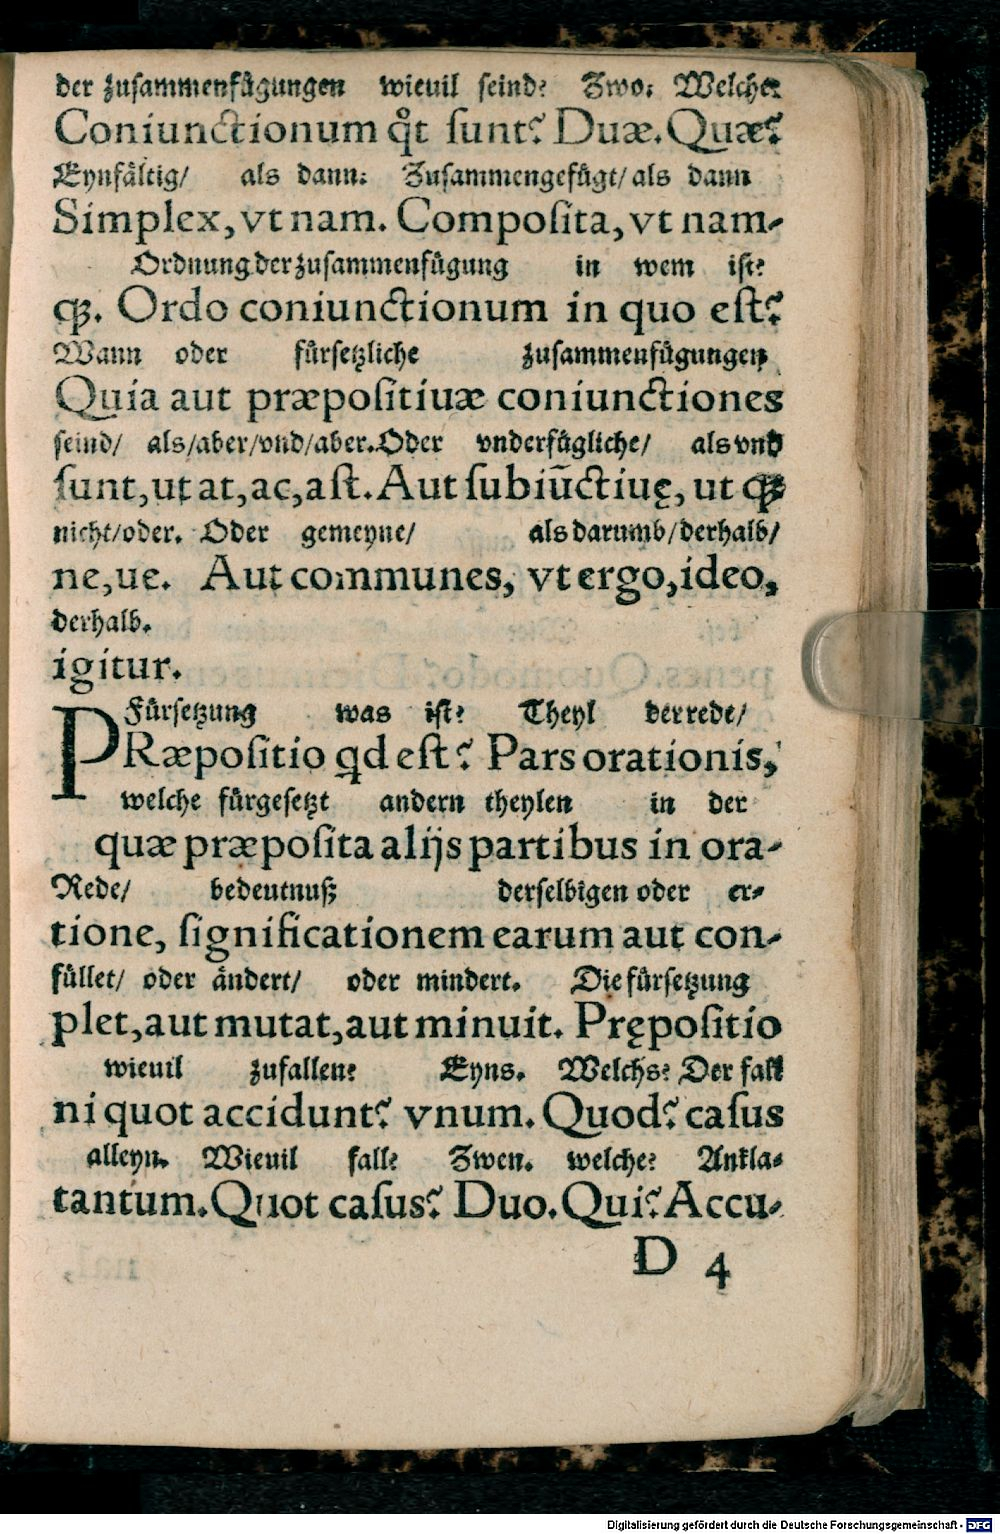 der zusammenfügungen wieuil seind? Zwo. Welche?
Coniunctionum qͦt sunt? Duæ. Quæ?
Eynfältig/ als dann. Zusammengefügt/ als dann
Simplex, vt nam. Composita, vt nam-
Ordnung der zusammenfügung in wem ist?
qꝫ. Ordo coniunctionum in quo est?
Wann oder fürsetzliche zusammenfügungen
Quia aut præpositiuæ coniunctiones
seind/ als/aber/vnd/aber. Oder vnderfügliche/ als vnd
sunt, ut at, ac, ast. Aut subiūctiuę, ut qꝫ
nicht/oder. Oder gemeyne/ als darumb/derhalb/
ne, ue. Aut communes, vt ergo, ideo,
derhalb.
igitur.
Fürsetzung was ist? Theyl der rede/
PRæpositio qd est? Pars orationis,
welche fürgesetzt andern theylen in der
quæ præposita alijs partibus in ora-
Rede/ bedeutnuß derselbigen oder er-
tione, significationem earum aut con-
füllet/ oder ändert/ oder mindert. Die fürsetzung
plet, aut mutat, aut minuit. Prępositio
wieuil zufallen? Eyns. Welchs? Der fall
ni quot accidunt? vnum. Quod? casus
alleyn. Wieuil fall? Zwen. welche? Ankla-
tantum. Quot casus? Duo. Qui? Accu-
D 4
Digitalisierung gefördert durch die Deutsche Forschungsgemeinschaft - DFG